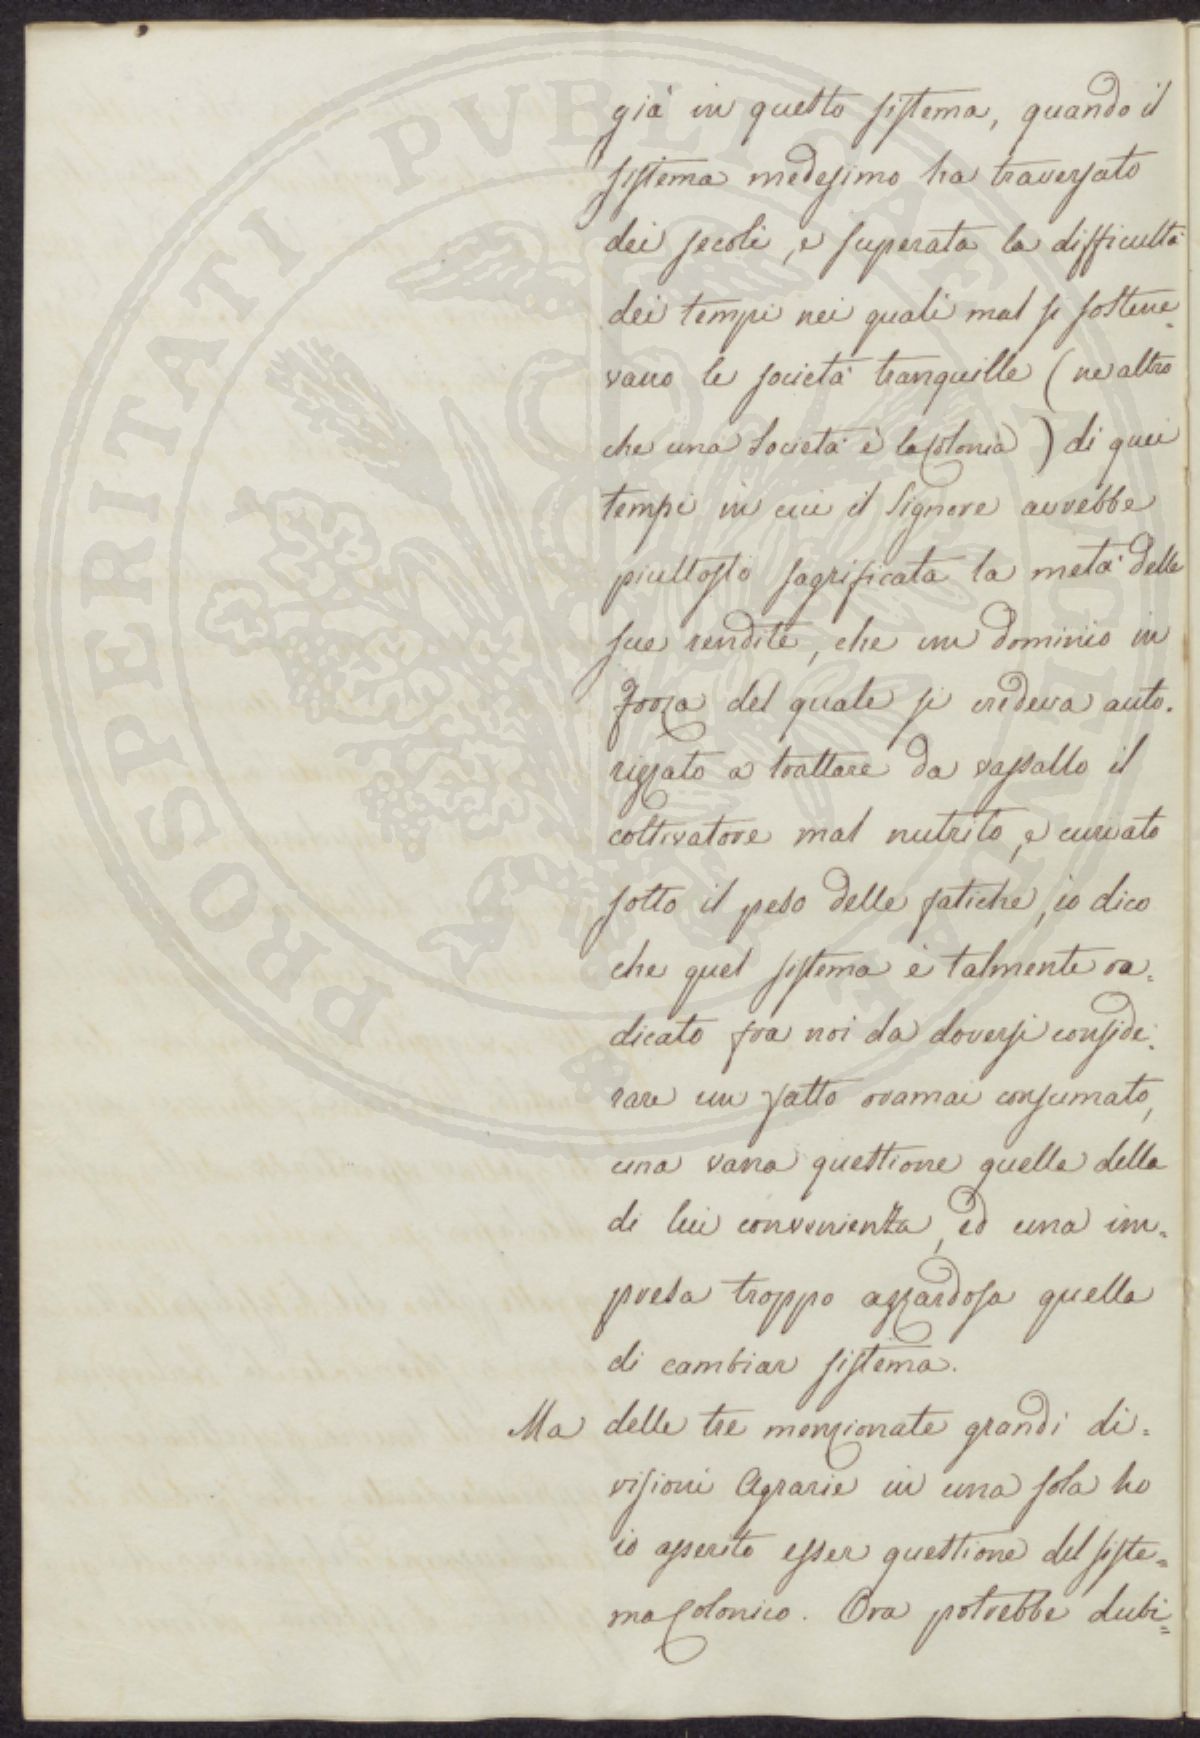 già in questo sistema, quando il
sistema medesimo ha traversato
dei secoli, e superata la difficultà
dei tempi nei quali mal si sostene=
vano le società tranquille (ne altro
che una Società è la Colonia) di quei
tempi in cui il Signore avrebbe
piuttosto sagrificata la metà delle
sue rendite, che un dominio in
Forza del quale si credeva auto=
rizzato a trattare da vassallo il
coltivatore mal nutrito, e curvato
sotto il peso delle fatiche, io dico
che quel sistema è talmente ra=
dicato fra noi da doversi conside=
rare un fatto oramai consumato,
una vana questione quella della
di lui convenienza, ed una im=
presa troppo azzardosa quella
di cambiar sistema.
Ma delle tre menzionate grandi di=
visioni Agrarie in una sola ho
io asserito esser questione del siste=
ma Colonico. Ora potrebbe dubi=
PROSPERITATI PUBLICAE AUGENDAE